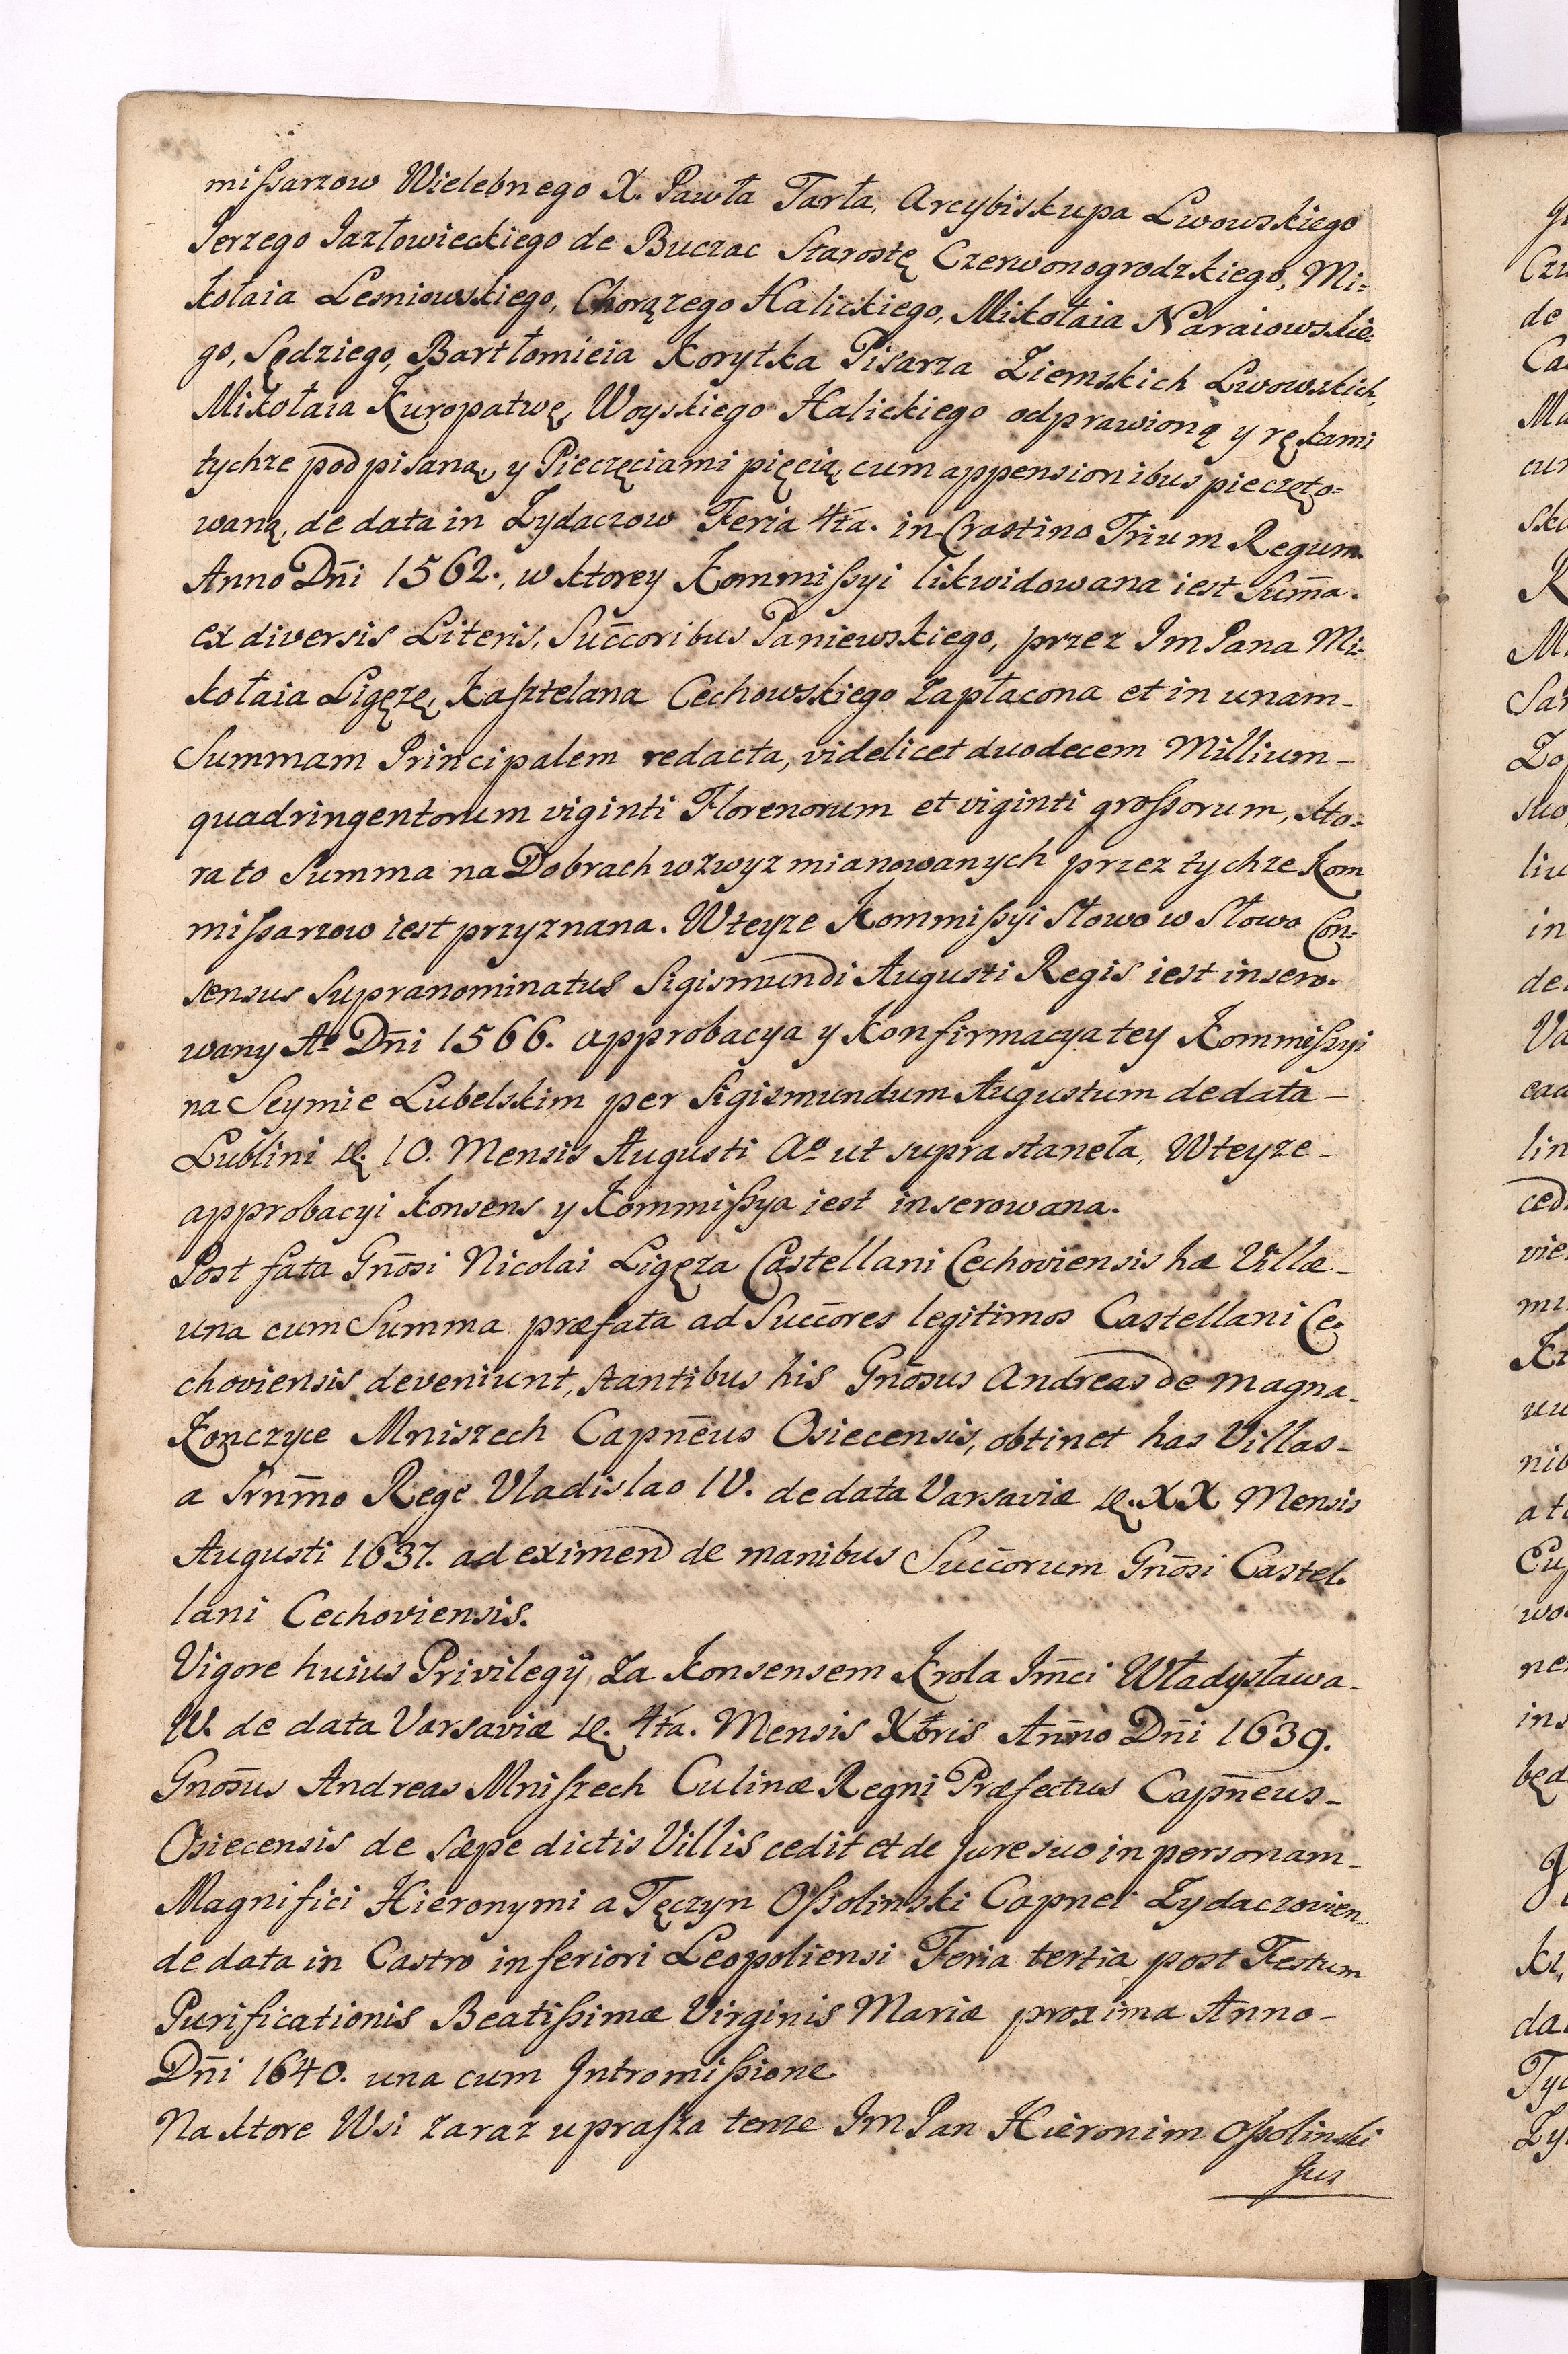 mißarzow Wielebnego X. Pawła Tarła, Arcybiskupa Lwowskiego
Jerzego Jazłowieckiego de Buczac Starostę Czerwonogrodzkiego, Mi=
kołaia Lesniowskiego, Chorązego Halickiego, Mikołaia Naraiowskie=
go, Sędziego, Bartłomieia Korytka Pisarza Ziemskich Lwowskich,
Mikołaia Kuropatwę, Woyskiego Halickiego odprawioną y rękami
tychze podpisaną, y Pieczęciami pięcią, cum appensionibus pieczęto=
waną, de data in Zydaczow Feria 4ta. in Crastino Trium Regum
Anno Dn̄i 1562., w ktorey Kommißyi likwidowana iest Sum̄a.
ex diversis Literis, Succ̄oribus Paniewskiego, przez Im Pana Mi=
kołaia Ligęzę, Kasztelana Cechowskiego zapłacona et in unam-
Summam Principalem redacta, videlicet duodecem Millium-
quadringentorum viginti Florenorum et viginti großorum, kto=
ra to Summa na Dobrach wzwyz mianowanych przez tychze Kom
mißarzow iest przyznana. W teyze Kommißyi Słowo w Słowo Con=
sensus Supranominatus Sigismundi Augusti Regis iest insero-
wany A⁰ Dn̄i 1566. approbacya y Konfirmacya tey Kommißyi
na Seymie Lubelskim per Sigismundum Augustum de data-
Lublini d. 10. Mensis Augusti A⁰ ut supra staneła, W teyze-
approbacyi Konsens y Kommißya iest inserowana.
Post fata Gn̄osi Nicolai Ligęza Castellani Cechoviensis hæ Villæ-
una cum Summa præfata ad Succ̄ores legitimos Castellani Ce=
choviensis deveniunt, stantibus his Gn̄osus Andreas de Magna-
Konczyce Mniszech Capn̄eus Osiecensis, obtinet has Villas-
a Srn̄mo Rege Vladislao IV. de data Varsaviæ d. XX Mensis
Augusti 1637. ad eximend de manibus Succ̄orum Gn̄osi Castel=
lani Cechoviensis.
Vigore huius Privilegij, za Konsensem Krola Jm̄ci Władysława-
IV. de data Varsaviæ d. 4ta. Mensis Xbris An̄no Dn̄i 1639.
Gnos̄us Andreas Mniszech Culinæ Regni Præfectus Capn̄eus-
Osiecensis de sæpe dictis Villis cedit et de Jure suo in personam-
Magnifici Hieronymi a Tęczyn Oßolinski Capnei Zydaczovien-
de data in Castro inferiori Leopoliensi Feria tertia post Festum
Purificationis Beatißimæ Virginis Mariæ proxima Anno-
Dn̄i 1640. una cum Intromißione
Na ktore Wsi zaraz uprasza tenze Im Pan Hieronim Oßolinski
Jus